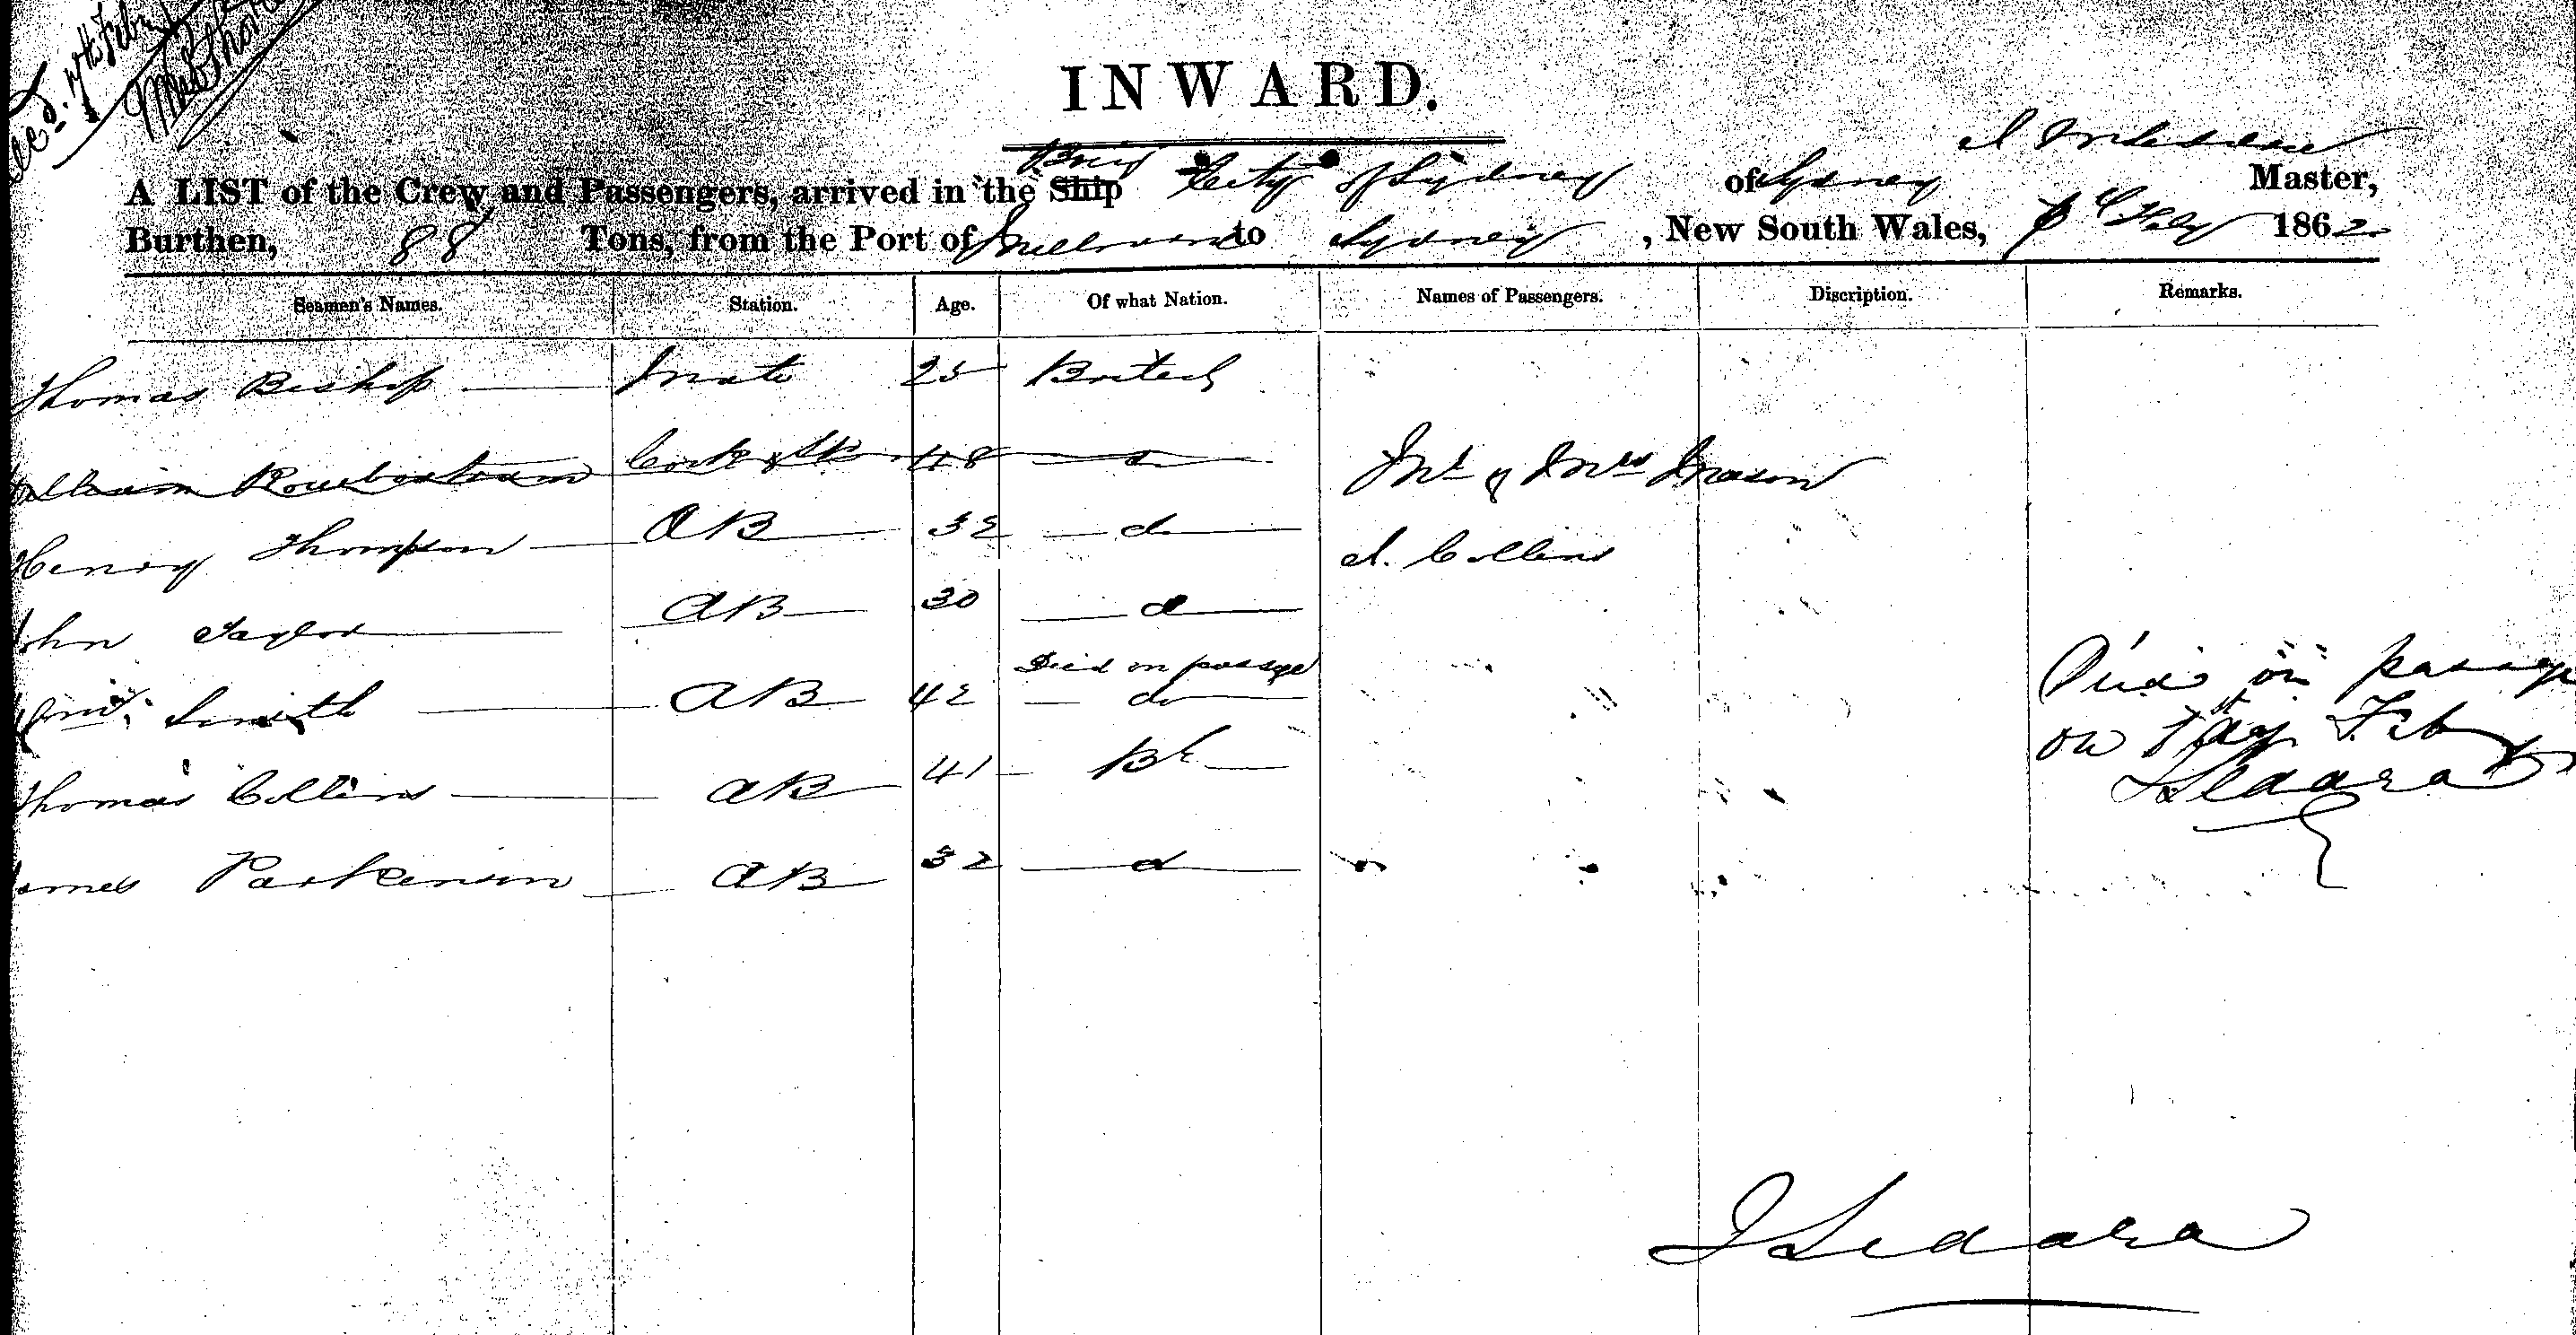 Recd. 7th Feby
INWARD.
Brig
A LIST of the Crew and Passengers, arrived in the Ship "City of Sydney of Sydney Master,
Burthen, 88 Tons, from the Port of Melbourne to Sydney, New South Wales, Feby 1862
Seamen's Names. Station. Age. Of what Nation. Names of Passengers. Discription. Remarks.
Thomas Bishop Mate 25 British
William Cook & 48 do Mr & Mrs Mason
Henry Thompson AB 32 do J. Collins
John Taylor AB 30 d
Died on passage Died on passage
Smith AB 42 do on 1st day Feb
Thomas Collins AB 41 Bh
James Parkinson AB 32 d